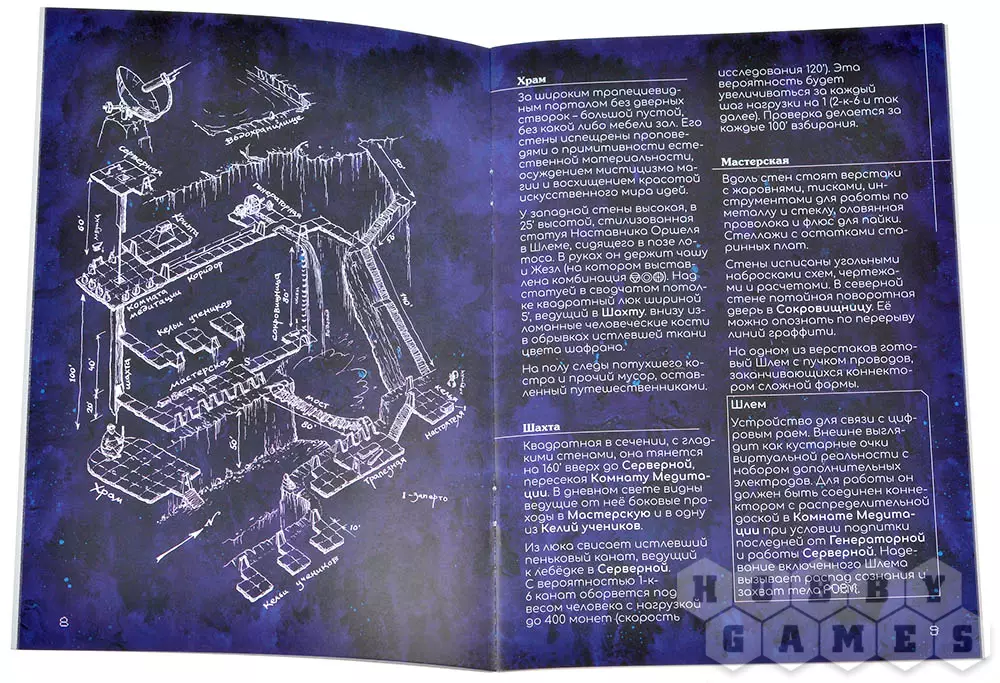 Водохранилище
Серверная
60'
Генераторная
50'
Коридор
комната
медитации
сокровищница
80'
140'
Кельи учеников
мастерская
S
шахта
100'
40'
20'
мост
80'
50'
келья
настоятеля
трапезная
Храм
1 - заперто
N
10'
Кельи учеников
8
Храм
За широким трапециевид-
ным порталом без дверных
створок – большой пустой,
без какой либо мебели зал. Его
стены испещрены пропове-
дями о примитивности есте-
ственной материальности,
осуждением мистицизма ма-
гии и восхищением красотой
искусственного мира идей.
У западной стены высокая, в
25' высотой, стилизованная
статуя Наставника Оршеля
в Шлеме, сидящего в позе ло-
тоса. В руках он держит чашу
и Жезл (на котором выстав-
лена комбинация). Над
статуей в сводчатом потол-
ке квадратный люк шириной
5', ведущий в Шахту, внизу из-
ломанные человеческие кости
в обрывках истлевшей ткани
цвета шафрана.
На полу следы потухшего ко-
стра и прочий мусор, остав-
ленный путешественниками.
Шахта
Квадратная в сечении, с глад-
кими стенами, она тянется
на 160' вверх до Серверной,
пересекая Комнату Медита-
ции. В дневном свете видны
ведущие от неё боковые про-
ходы в Мастерскую и в одну
из Келий учеников.
Из люка свисает истлевший
пеньковый канат, ведущий
к лебёдке в Серверной.
С вероятностью 1-к-
6 канат оборвется под
весом человека с нагрузкой
до 400 монет (скорость
исследования 120'). Эта
вероятность будет
увеличиваться за каждый
шаг нагрузки на 1 (2-к-6 и так
далее). Проверка делается за
каждые 100' взбирания.
Мастерская
Вдоль стен стоят верстаки
с жаровнями, тисками, ин-
струментами для работы по
металлу и стеклу, оловянная
проволока и флюс для пайки.
Стеллажи с остатками ста-
ринных плат.
Стены исписаны угольными
набросками схем, чертежа-
ми и расчетами. В северной
стене потайная поворотная
дверь в Сокровищницу. Её
можно опознать по перерыву
линий граффити.
На одном из верстаков гото-
вый Шлем с пучком проводов,
заканчивающихся коннекто-
ром сложной формы.
Шлем
Устройство для связи с циф-
ровым раем. Внешне выгля-
дит как кустарные очки
виртуальной реальности с
набором дополнительных
электродов. Для работы он
должен быть соединен коннек-
тором с распределительной
доской в Комнате Медита-
ции при условии подпитки
последней от Генераторной
и работы Серверной. Наде-
вание включенного Шлема
вызывает распад сознания и
захват тела
HOBBY
GAMES